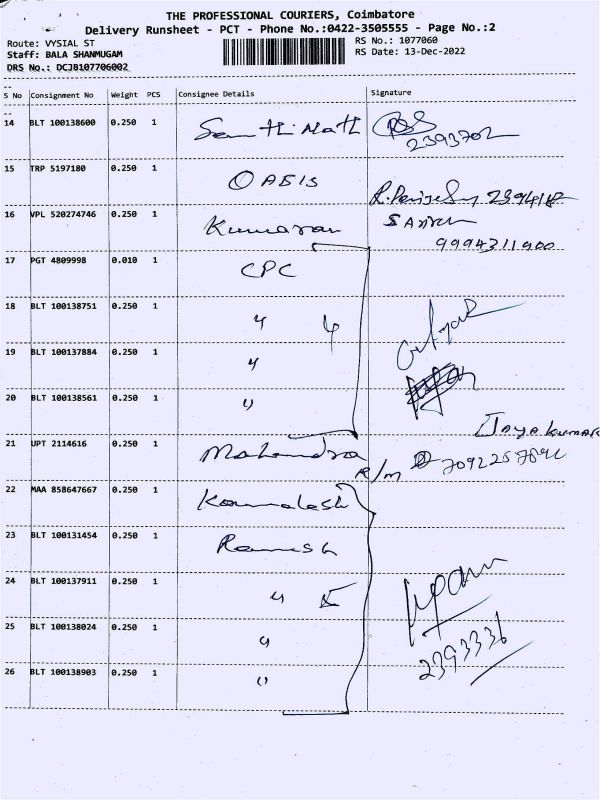 THE PROFESSIONAL COURIERS, Coimbatore
Delivery Runsheet - PCT - Phone No.:0422-3505555 - Page No.:2
Route: VYSIAL ST RS No.: 1077060
Staff: BALA SHANMUGAM RS Date: 13-Dec-2022
DRS No.: DCJB107706002
S No Consignment No Weight PCS Consignee Details Signature
14 BLT 100138600 0.250 1 2393702
15 TRP 5197180 0.250 1 OASIS
16 VPL 520274746 0.250 1 Kumaran
9994311900
17 PGT 4809998 0.010 1 CPC
18 BLT 100138751 0.250 1 " 4
19 BLT 100137884 0.250 1 "
20 BLT 100138561 0.250 1 "
Jayakumar
21 UPT 2114616 0.250 1 Mahendra R/m
22 MAA 858647667 0.250 1 Kamalesh
23 BLT 100131454 0.250 1 Ramesh
24 BLT 100137911 0.250 1 " 5
25 BLT 100138024 0.250 1 "
2393336
26 BLT 100138903 0.250 1 "